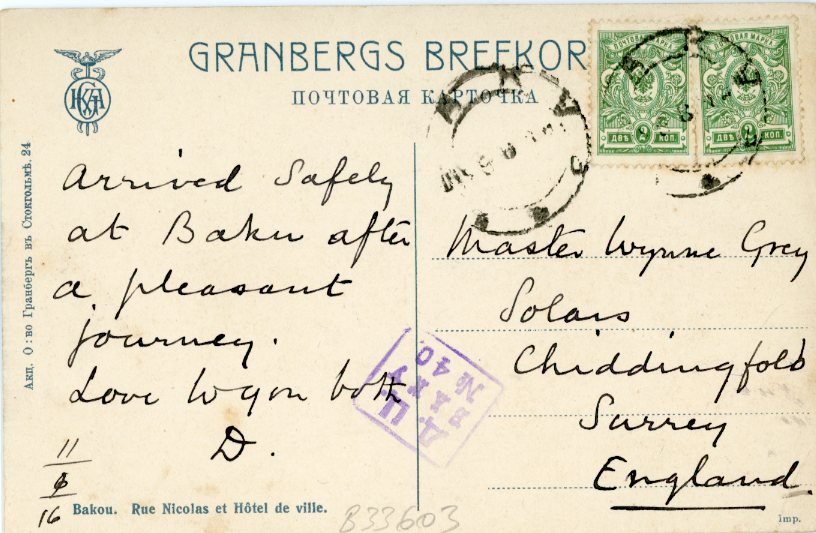 GRANBERGS BREFKOR
ПОЧТОВАЯ КАРТОЧКА
ПОЧТОВАЯ МАРКА
ДВѢ 2 КОП.
ПОЧТОВАЯ МАРКА
ДВѢ 2 КОП.
Arrived Safely
at Baku after
a pleasant
journey.
Love to you both
D.
11
16
Master Wynne Grey
Solars
Chiddingfold
Surrey
England.
Д. Ц.
БАКУ
№ 40.
Акц. О:во Гранбергъ въ Стокгольмѣ. 24
Bakou. Rue Nicolas et Hôtel de ville.
B33603
imp.